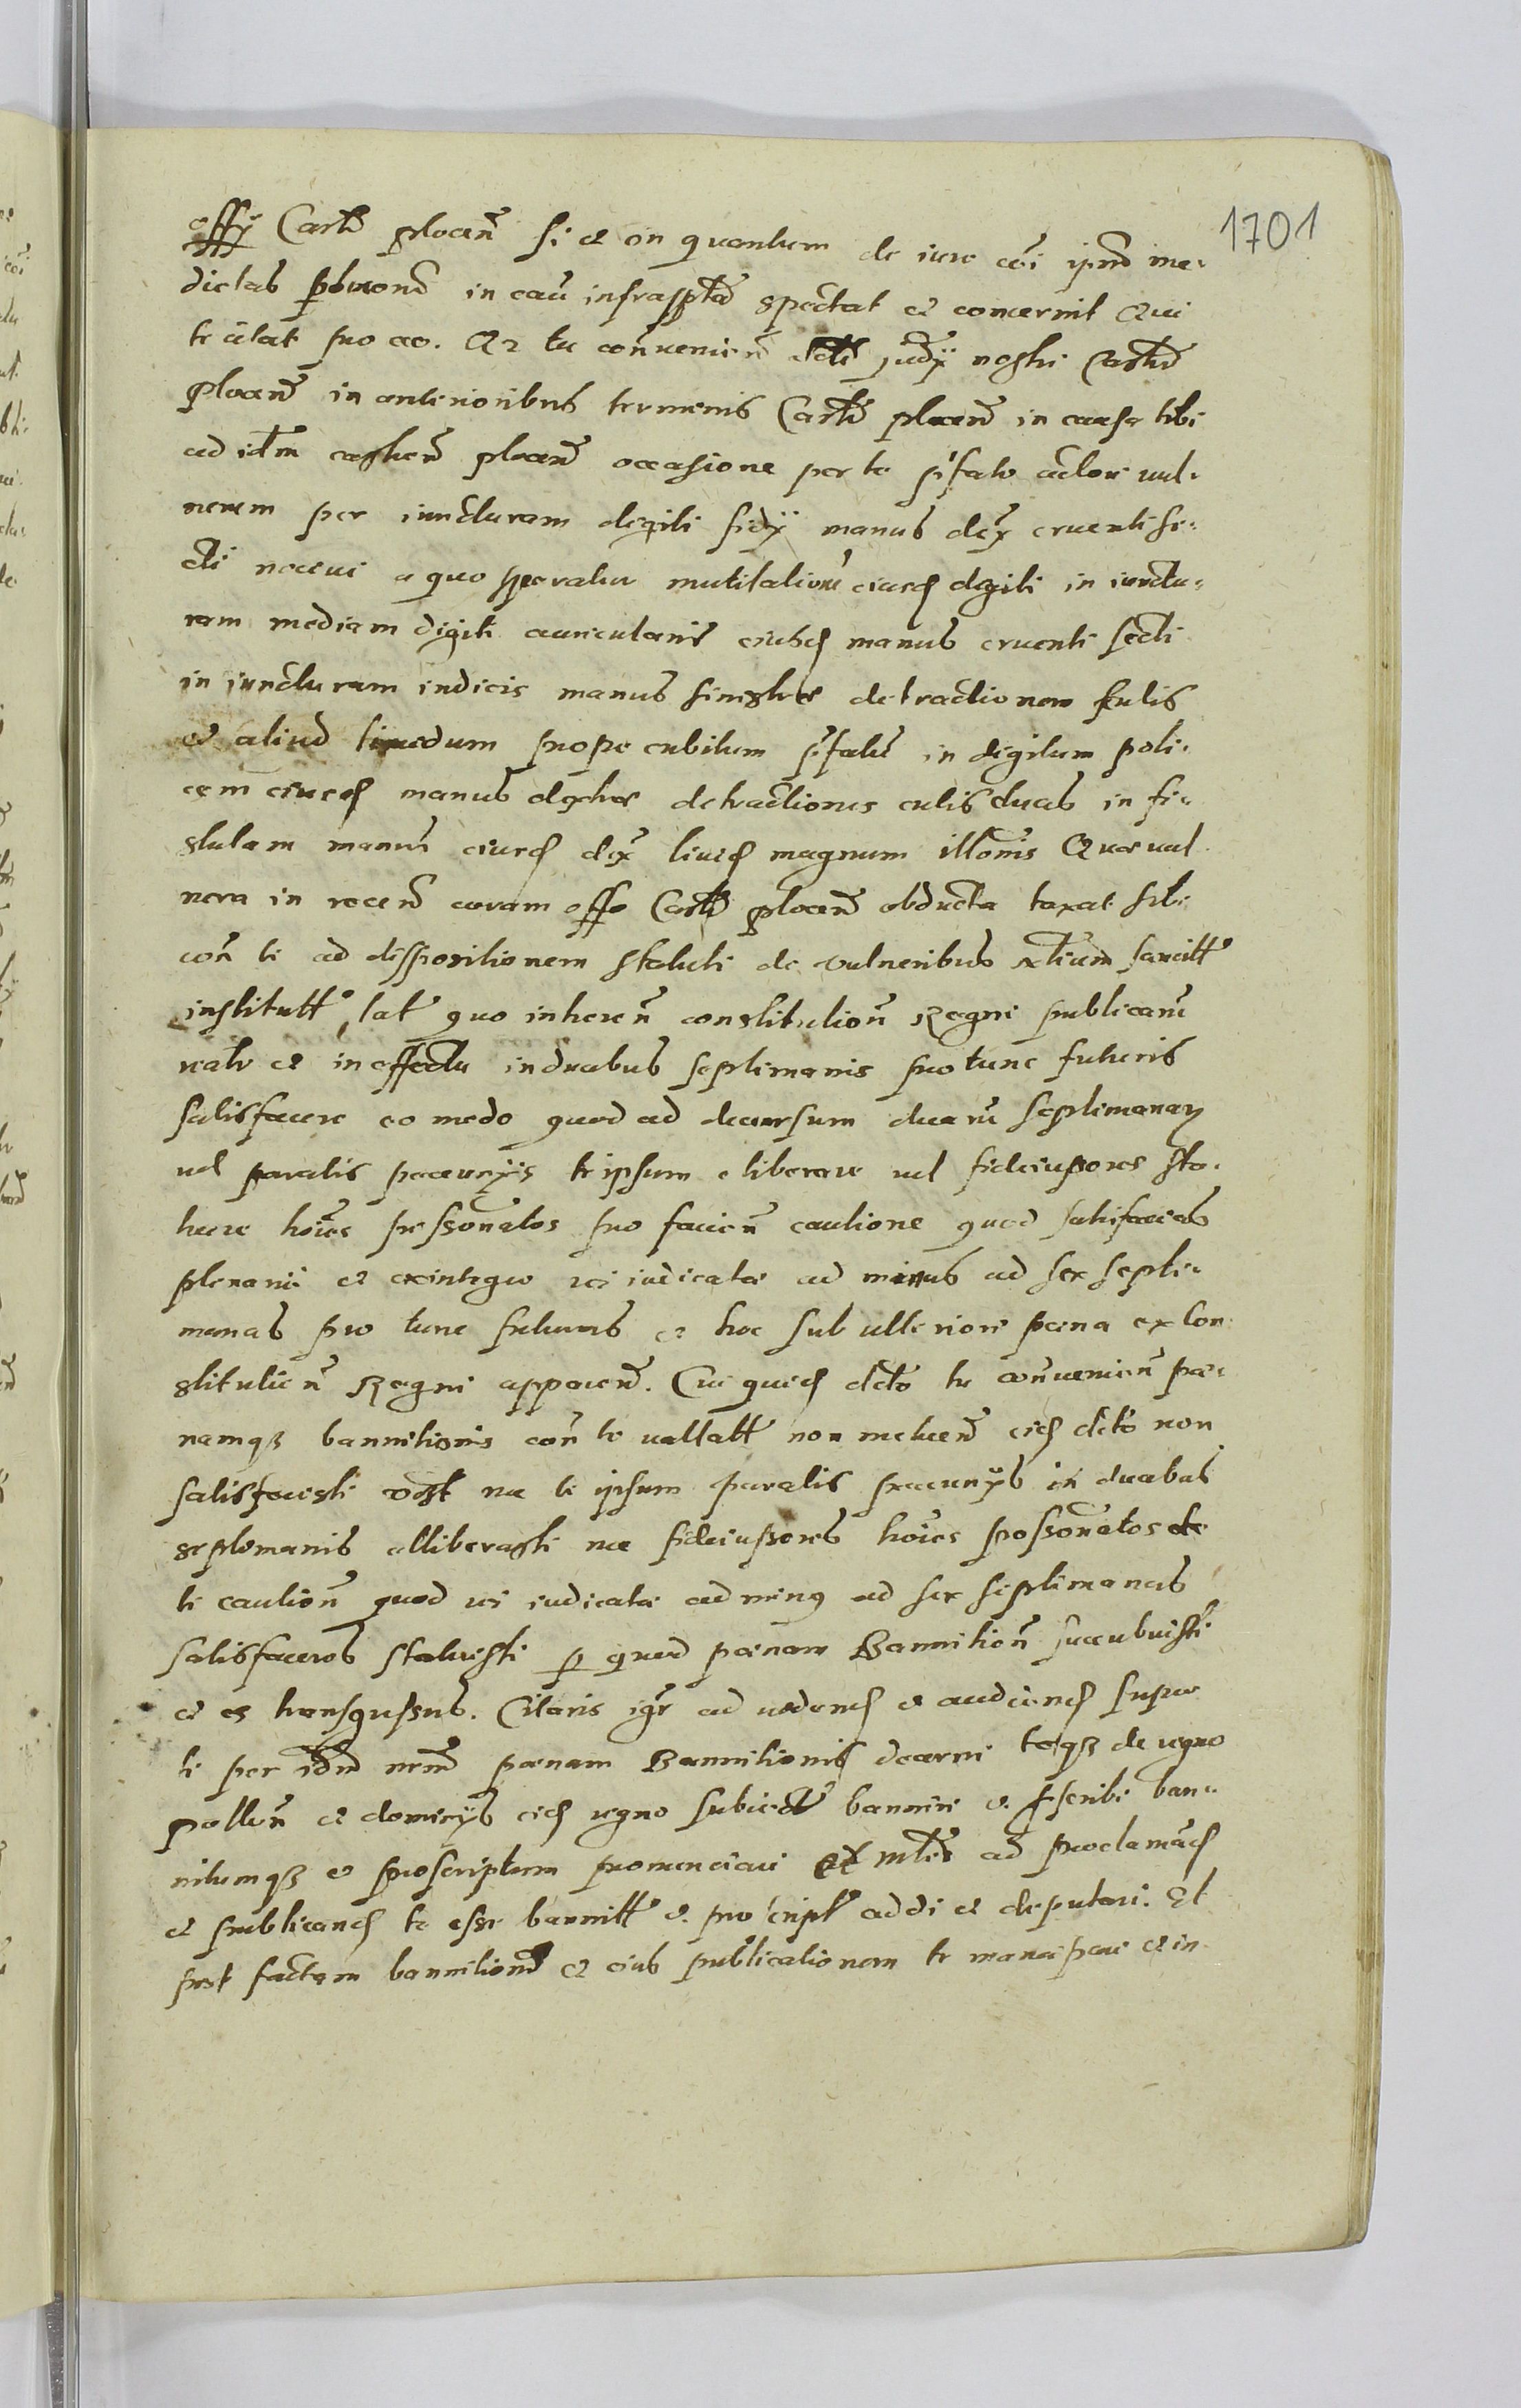 1701
offy Castri plocen si et in quantum de iure coi ipm me-
dietas plemond in cau infrascpta spectat et concernit Qui
te citat pro eo. Qr tu conueniens dcti judy nostri Castri
Plocen in anterioribus terminis Castri plocen in causa tibi
ad idm castren plocen occasione per te pfato actori vul-
nerum per iuncturam digiti fidy manus dex cruenti se-
cti nocivi a quo speratur mutilationem eiusd digiti in iunctu-
ram mediam digiti auricularis eiusd manus cruenti secti
in iuncturam indicis manus sinistre detractionem cutis
et aliud liuidum prope cubitum pfatu in digitum poli-
cem eiusd manus dextre detractiones cutis duas in fi-
stulam manus eiusd dex liuid magnum illonis Que vul
nera in recen coram offo Castri plocen obducta taxat sibi
con te ad dispositionem statuti de vulneribus sancitt
institutt lat quo inheren constitution Regni publicam
reatr et in effectu in duabus septimanis pro tunc futuris
satisfacere eo modo quod ad decursum duaru septimanaru
vel paratis pecunijs te ipsum eliberare vel fideiussores sta-
tuere hoies possonatos pro facien cautione quod satisfacias
plenarie et exintegro rei iudicatae ad minus ad sex septi-
manas pro tunc futuras et hoc sub ulteriori poena ex Con-
stitution Regni apponen. Cui quid dcto tu conuenien poe-
namqz bannitionis con te vallatt non metuen eid dcto non
satisfecisti nec te ipsum paratis pecunijs in duabus
septimanis alliberasti nec fideiussores hoies possonatos de
te caution quod rei iudicatae ad minus ad sex septimanas
satisfaceres statuisti p quod poenam Bannition succubuisti
et es transgressus. Citaris igr ad vidend et audiend super
te per idm nrm poenam Bannitionis decerni teqz de regno
pollon et dominijs eid regno subiect banniri et pscribi ban-
nitumqz et proscriptum pronunciari et mltr ad proclamand
et publicand te esse bannitt et proscript addi et deputari. Et
post factam bannitionem et eius publicationem te mancipari et in